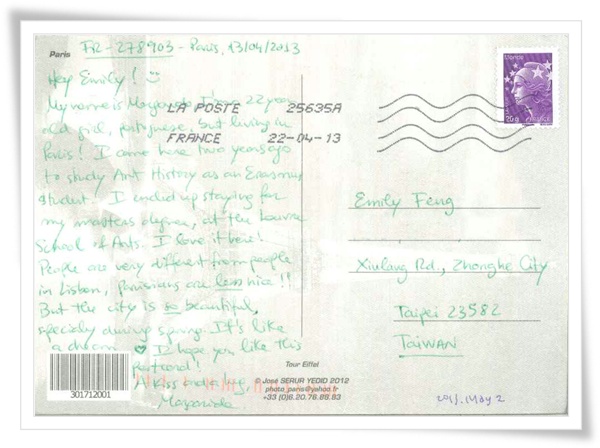 Paris FR-278903 - Paris, 13/04/2013
Hey Emily! ☺
My name is Margarida I'm a 22 year
old girl, portuguese, but living in
Paris! I came here two years ago
to study Art History as an Erasmus
student. I ended up staying for
my masters degree, at the Louvre
School of Arts. I love it here!
People are very different from people
in Lisbon, parisians are less nice!!
But the city is so beautiful,
specialy during spring. It's like
a dream ♥ I hope you like this
postcard!
A kiss and a hug,
Margarida
LA POSTE 25635A
FRANCE 22-04-13
20g FRANCE
Emily Feng
Xiulang Rd., Zhonghe City
Taipei 23582
TAIWAN
2013. May 2
301712001
Tour Eiffel
© José SERUR YEDID 2012
photo_paris@yahoo.com
+33 (0)6.20.76.88.83